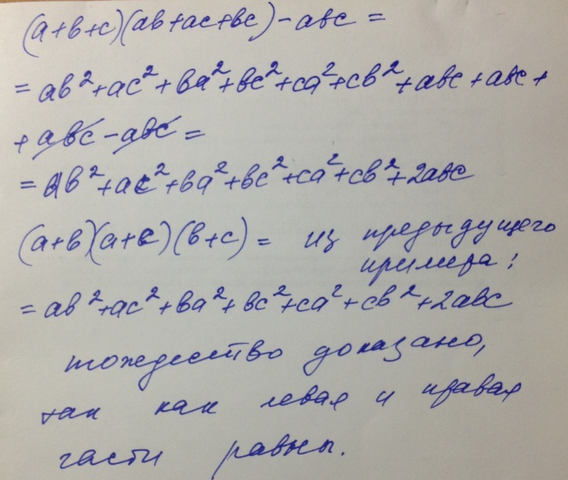 (a+b+c)(ab+ac+bc)-abc=
=ab²+ac²+ba²+bc²+ca²+cb²+abc+abc+
+abc-abc=
=ab²+ac²+ba²+bc²+ca²+cb²+2abc
(a+b)(a+c)(b+c)= из предыдущего
примера:
=ab²+ac²+ba²+bc²+ca²+cb²+2abc
тождество доказано,
так как левая и правая
части равны.